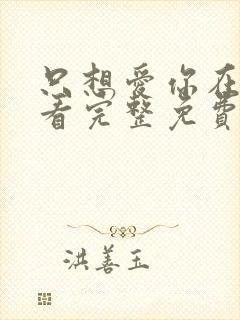 只想爱你在
看完整免費
洪善玉